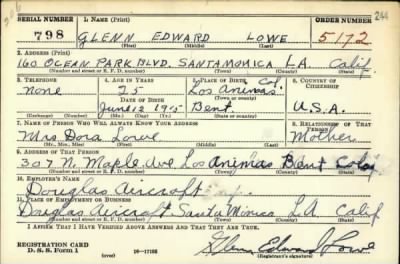 206 244
SERIAL NUMBER 1. NAME (Print) ORDER NUMBER
798 GLENN EDWARD LOWE 5172
(First) (Middle) (Last)
2. ADDRESS (Print)
160 OCEAN PARK BLVD. SANTA MONICA L.A. Calif.
(Number and street or R. F. D. number) (Town) (County) (State)
3. TELEPHONE 4. AGE IN YEARS 5. PLACE OF BIRTH 6. COUNTRY OF CITIZENSHIP
None 25 Los Animas Col
DATE OF BIRTH
June 12 Bent U.S.A.
7. NAME OF PERSON WHO WILL ALWAYS KNOW YOUR ADDRESS 8. RELATIONSHIP OF THAT PERSON
Mrs Dora Lowe Mother
(Mr., Mrs., Miss) (First) (Middle) (Last)
9. ADDRESS OF THAT PERSON
307 N. Maple Ave Los Animas Bent Colo
(Number and street or R. F. D. number) (Town) (County) (State)
10. EMPLOYER'S NAME
Douglas Aircraft
11. PLACE OF EMPLOYMENT OR BUSINESS
Douglas Aircraft Santa Monica L.A. Calif
(Number and street or R. F. D. number) (Town) (County) (State)
I AFFIRM THAT I HAVE VERIFIED ABOVE ANSWERS AND THAT THEY ARE TRUE.
REGISTRATION CARD
D. S. S. Form 1 (over) Glenn Edward Lowe
(Registrant's signature)